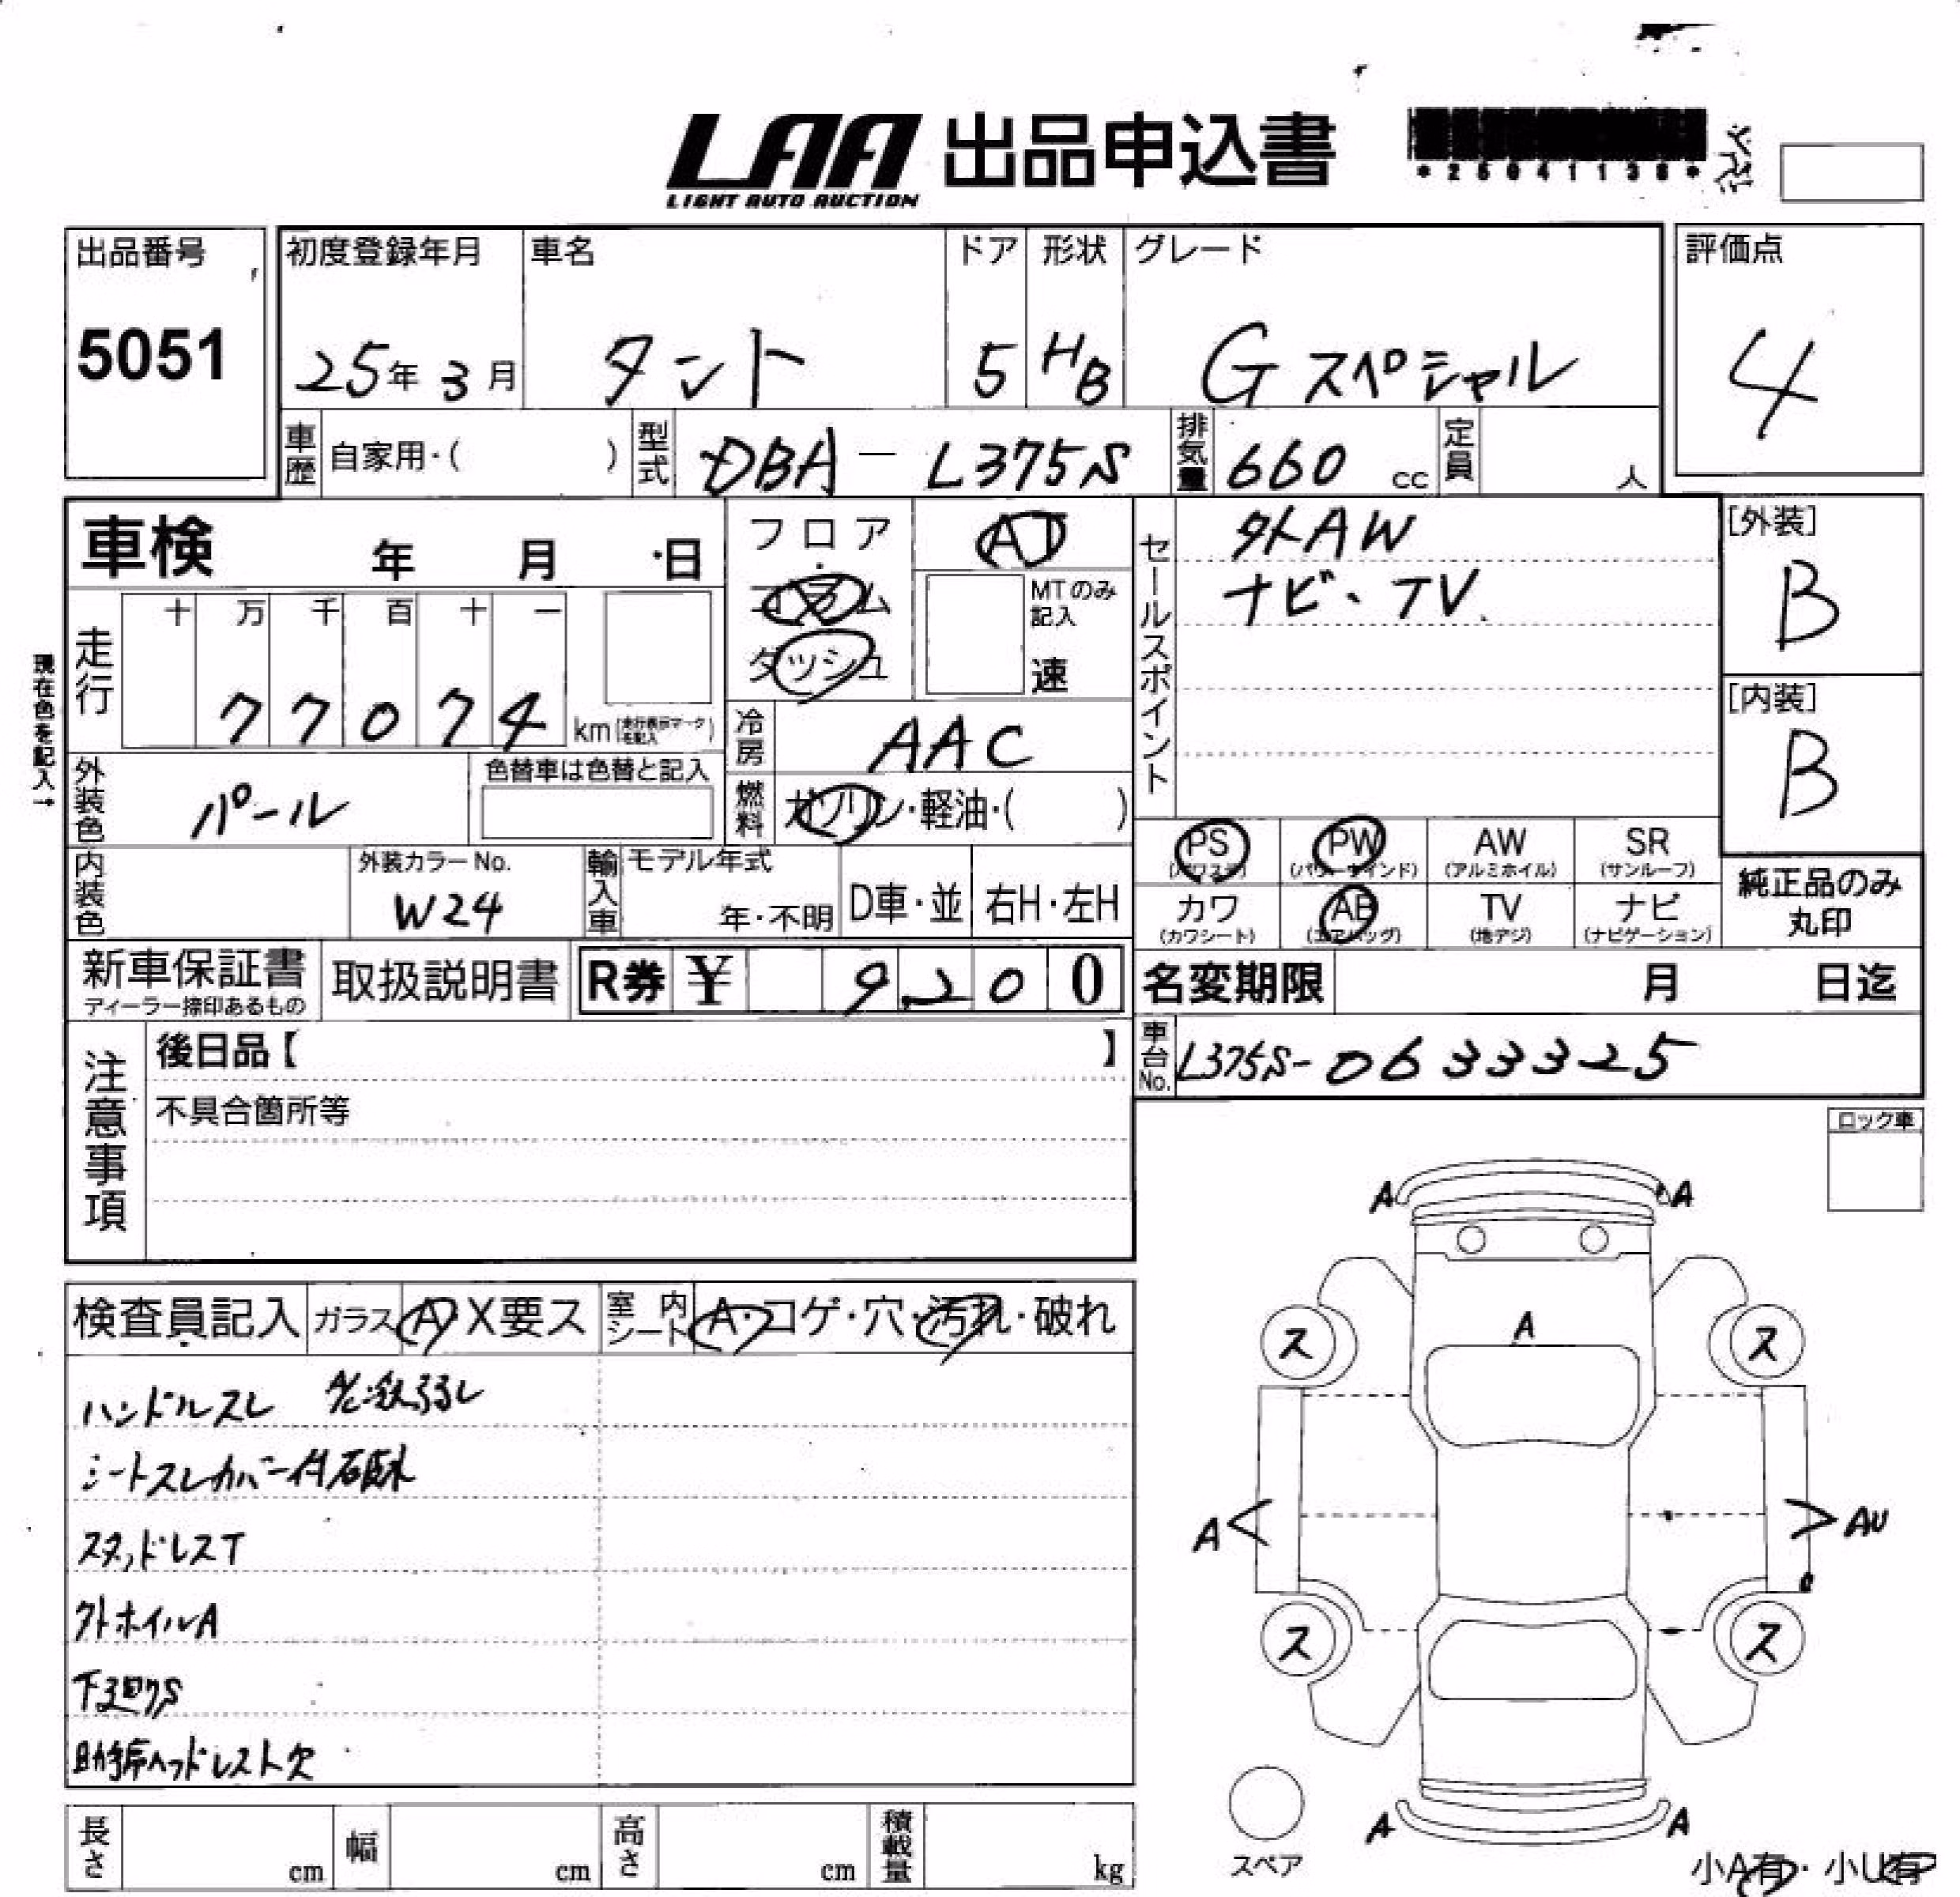 LAA 出品申込書
LIGHT AUTO AUCTION
*25041138*
出品番号
5051
初度登録年月
25年 3月
車名
タント
ドア
5
形状
HB
グレード
Gスペシャル
評価点
4
車歴 自家用・( )
型式 DBA－L375S
排気量 660 cc
定員 人
車検 年 月 日
フロア
・
コラム
ダッシュ
AT
MTのみ
記入
速
セールスポイント
外AW
ナビ、TV
[外装]
B
[内装]
B
現在色を記入→
走行
十 万 千 百 十 一
77074 km (走行表示マークを記入)
冷房 AAC
外装色 パール
色替車は色替と記入
燃料 ガソリン・軽油・( )
PS
(パワステ)
PW
(パワーウインド)
AW
(アルミホイル)
SR
(サンルーフ)
カワ
(カワシート)
AB
(エアバッグ)
TV
(地デジ)
ナビ
(ナビゲーション)
純正品のみ
丸印
内装色
外装カラーNo.
W24
輸入車
モデル年式
年・不明
D車・並
右H・左H
新車保証書
ディーラー捺印あるもの
取扱説明書
R券 ¥ 9,200
名変期限 月 日迄
車台No. L375S-0633325
注意事項
後日品【 】
不具合箇所等
ロック車
検査員記入
ガラス A・X要ス
室内シート A・コゲ・穴・汚れ・破れ
ハンドルスレ
シートスレカバー付
スタッドレスT
外ホイルA
下回りS
助手席ヘッドレスト欠
A A
A
ス ス
A AU
ス ス
A A
スペア
小A有・小U有
長さ cm
幅 cm
高さ cm
積載量 kg